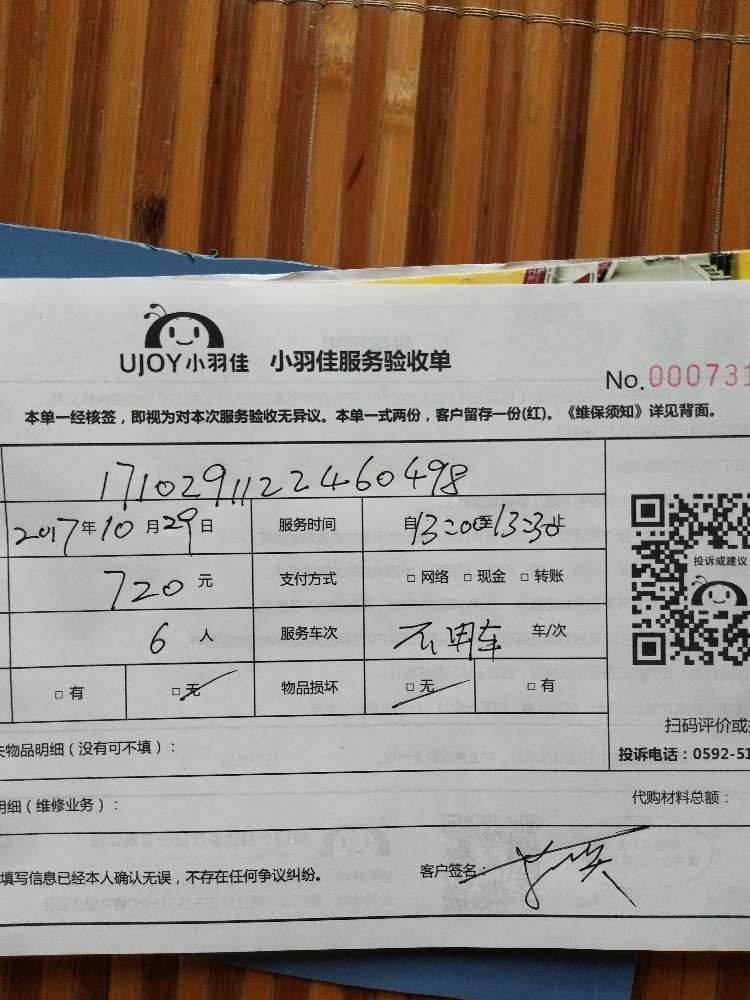 UJOY小羽佳 小羽佳服务验收单
No.000731
本单一经核签，即视为对本次服务验收无异议。本单一式两份，客户留存一份(红)。《维保须知》详见背面。
17102911222460498
2017年10月29日 服务时间 自13:00至13:30止
720元 支付方式 □网络 □现金 □转账
6人 服务车次 不用车 车/次
□有 □无 物品损坏 □无 □有
投诉或建议
扫码评价或
失物品明细（没有可不填）：
投诉电话：0592-51
明细（维修业务）：
代购材料总额：
填写信息已经本人确认无误，不存在任何争议纠纷。
客户签名：